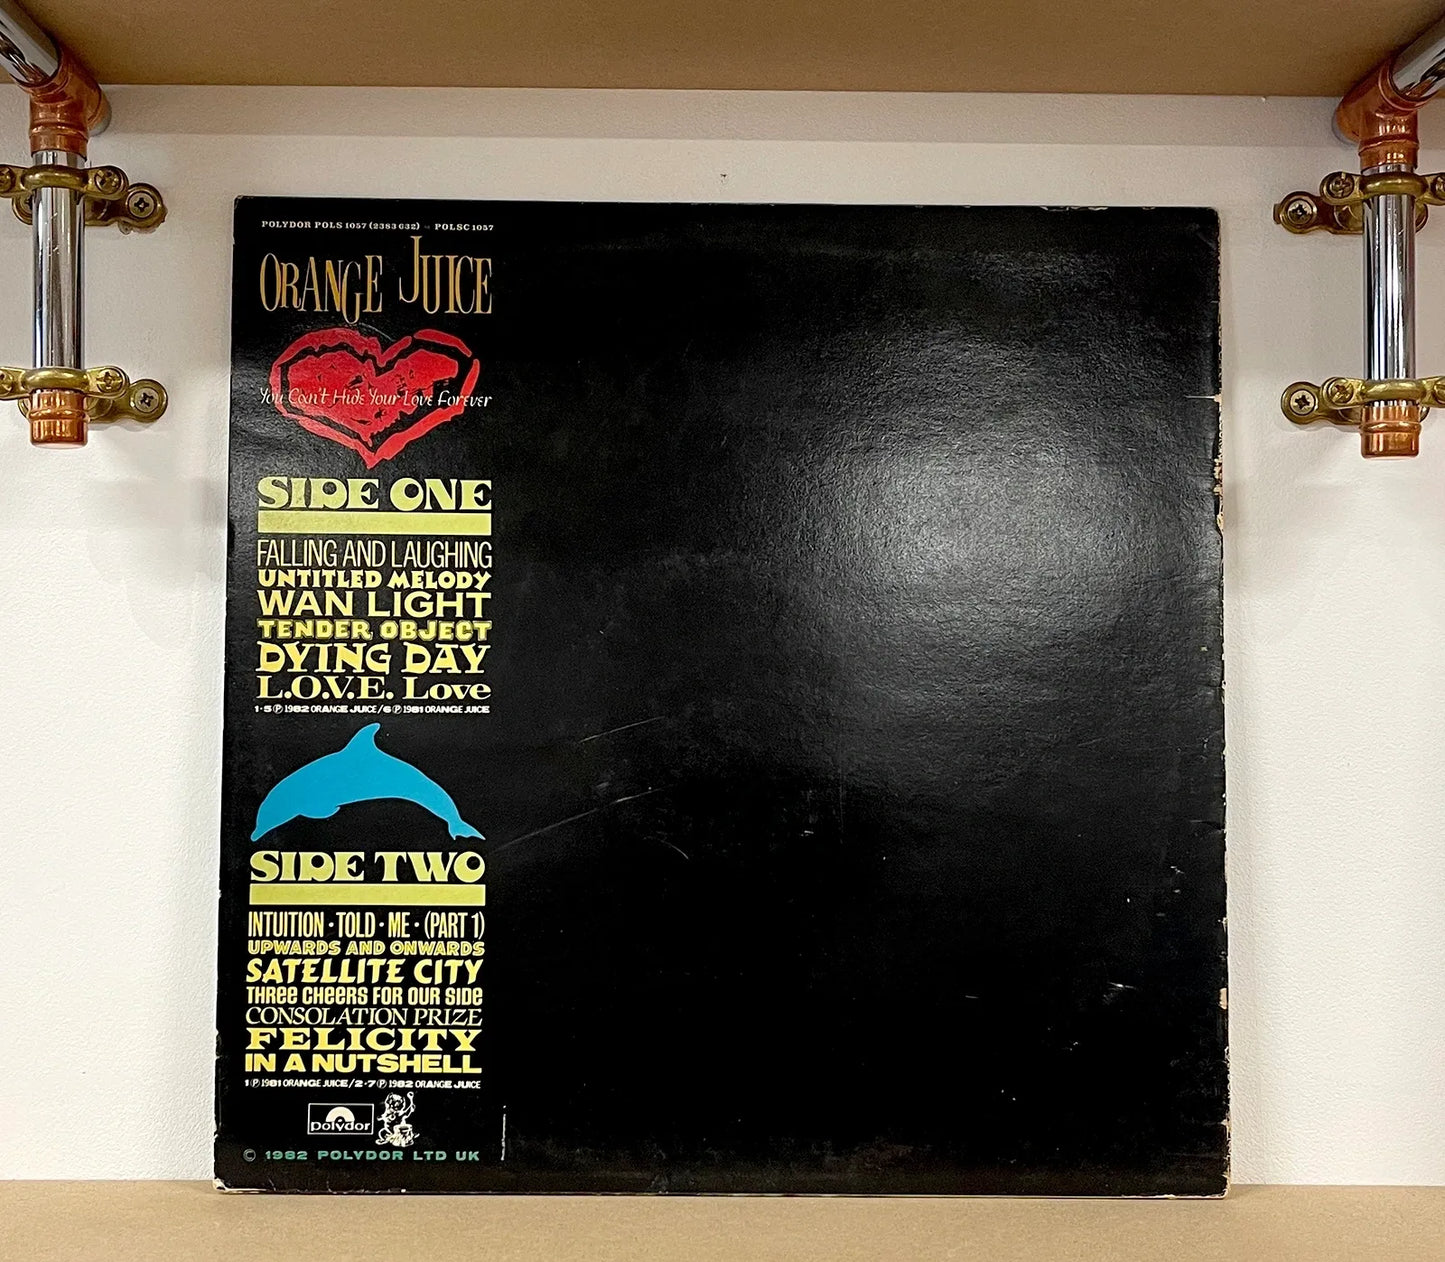 POLYDOR POLS 1057 (2383 632) ▭ POLSC 1057
ORANGE JUICE
You Can't Hide Your Love Forever
SIDE ONE
FALLING AND LAUGHING
UNTITLED MELODY
WAN LIGHT
TENDER OBJECT
DYING DAY
L.O.V.E. Love
1-5 ℗ 1982 ORANGE JUICE/6 ℗ 1981 ORANGE JUICE
SIDE TWO
INTUITION · TOLD · ME · (PART 1)
UPWARDS AND ONWARDS
SATELLITE CITY
THREE CHEERS FOR OUR SIDE
CONSOLATION PRIZE
FELICITY
IN A NUTSHELL
1 ℗ 1981 ORANGE JUICE/2-7 ℗ 1982 ORANGE JUICE
polydor
© 1982 POLYDOR LTD UK